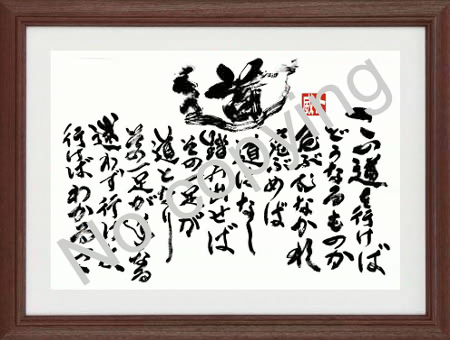 道
この道を行けば
どうなるものか
危ぶむなかれ
危ぶめば
道はなし
踏み出せば
その一足が
道となり
その一足が道となる
迷わず行けよ
行けばわかるさ
No copying